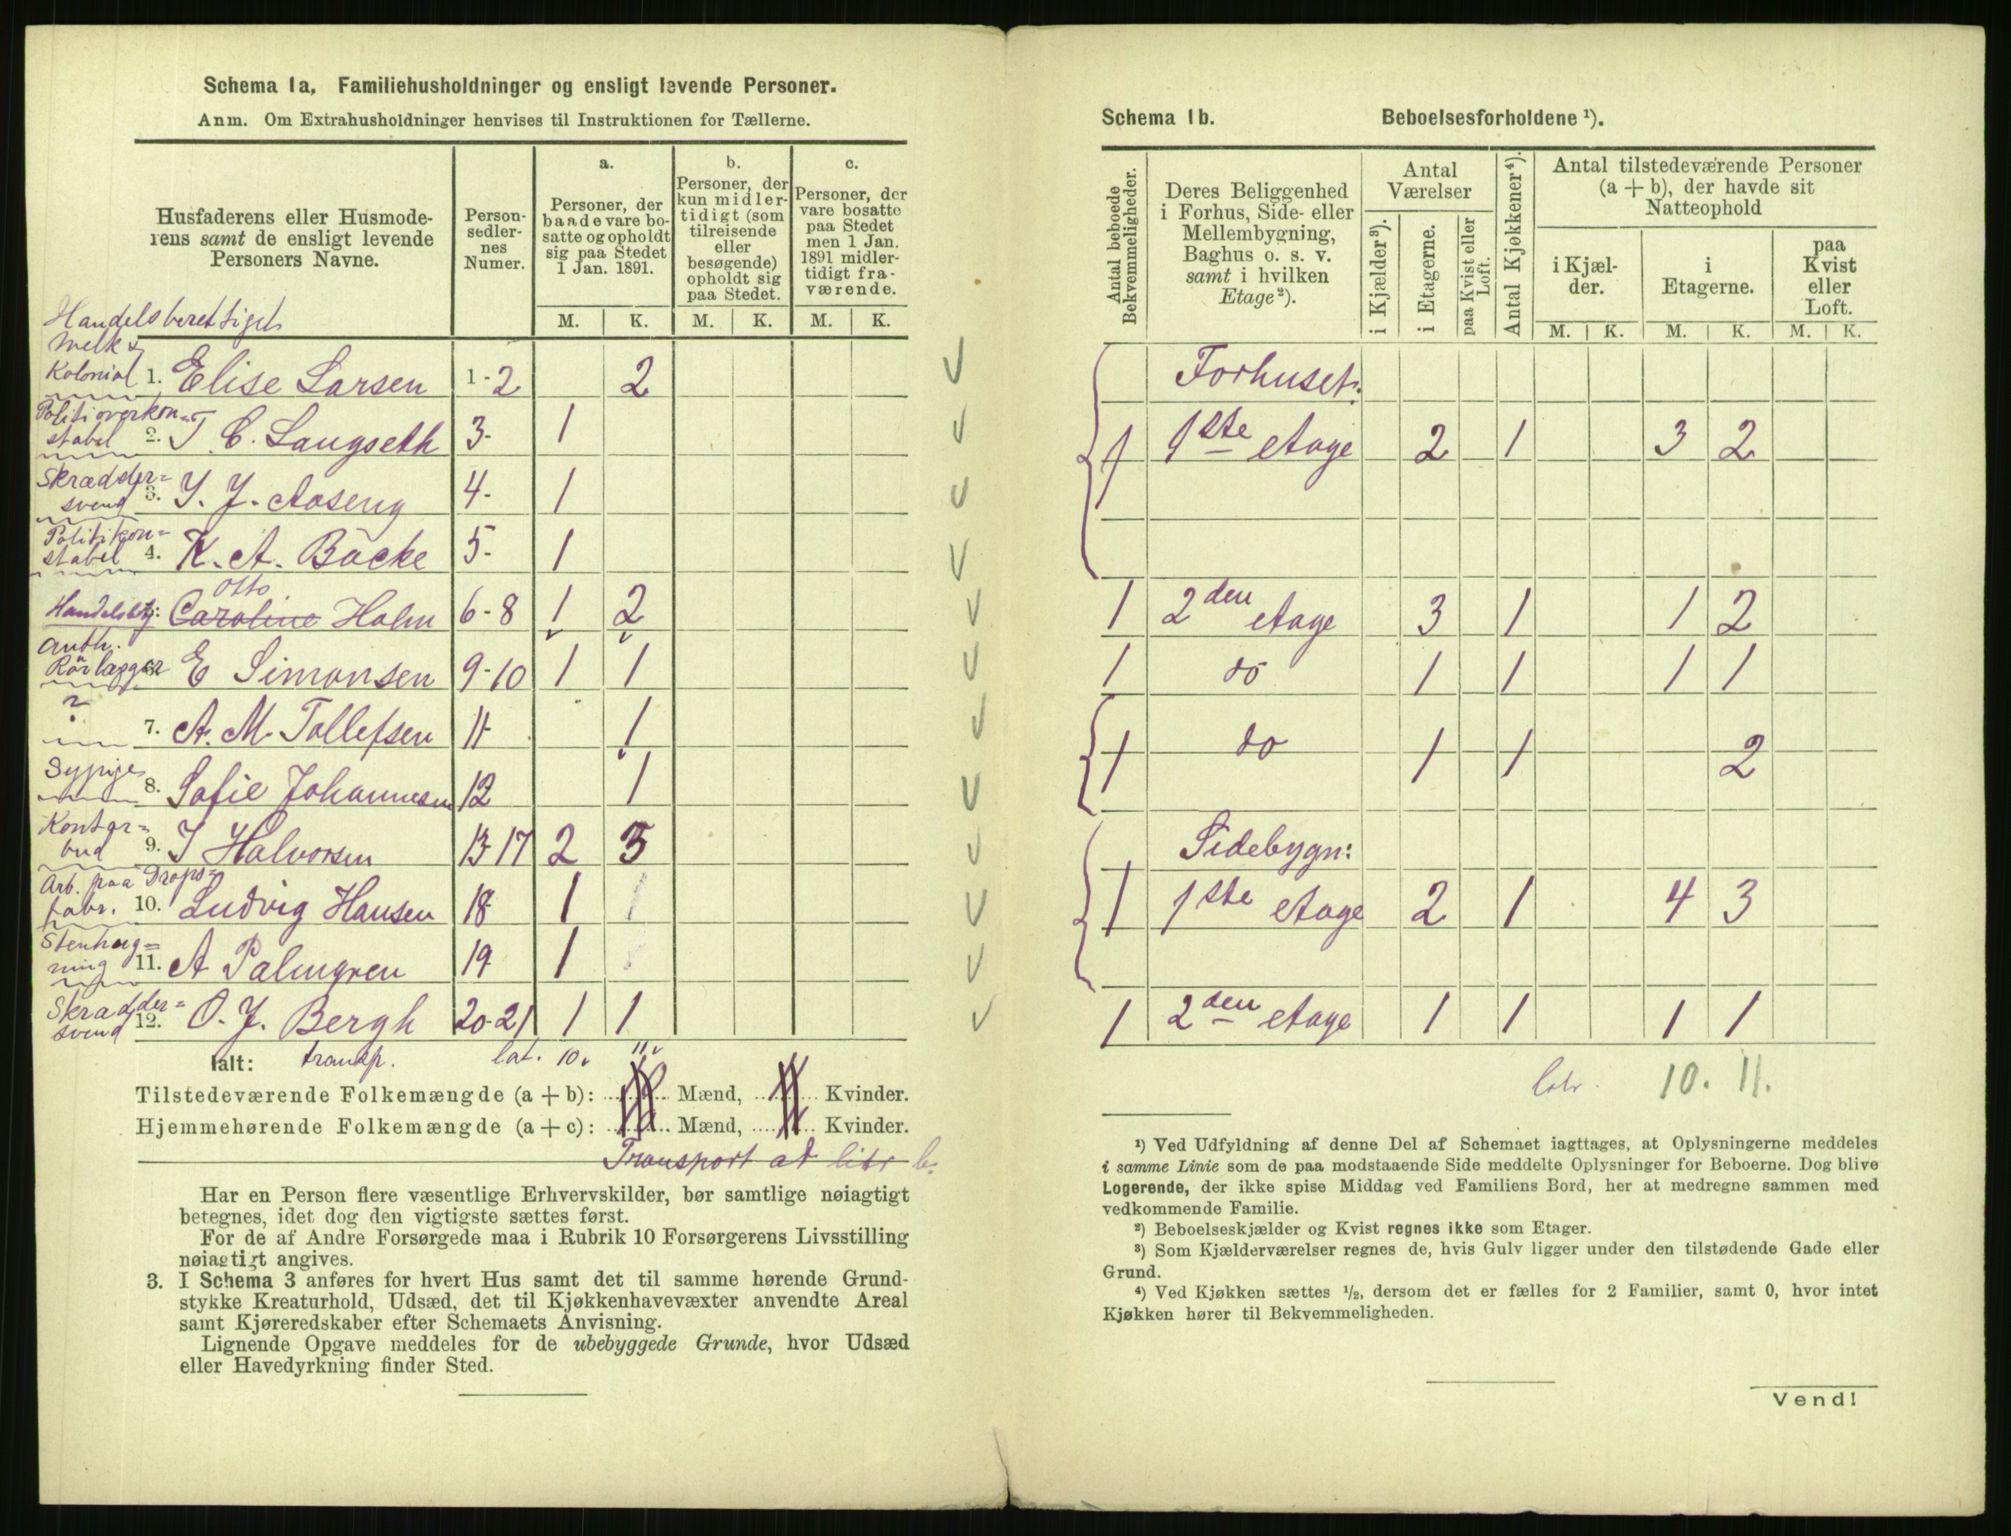 Schema 1a. Familiehusholdninger og ensligt levende Personer.
Anm. Om Extrahusholdninger henvises til Instruktionen for Tællerne.
Husfaderens eller Husmode-
rens samt de ensligt levende
Personers Navne.
Person-
sedler-
nes
Numer.
a.
Personer, der
baade vare bo-
satte og opholdt
sig paa Stedet
1 Jan. 1891.
b.
Personer, der
kun midler-
tidigt (som
tilreisende
eller
besøgende)
opholdt sig
paa Stedet.
c.
Personer, der
vare bosatte
paa Stedet
men 1 Jan.
1891 midler-
tidigt fra-
værende.
M. K. M. K. M. K.
Handelsberettiget
Melk &
Kolonial 1. Elise Larsen 1-2 2
Politioverkon=
stabel 2. T. C. Langseth 3- 1
Skrædder=
svend 3. J. J. Aaseng 4- 1
Politikon=
stabel 4. K. A. Bäcke 5- 1
Otto
Handelsbtj: Caroline Holm 6-8 1 2
Auth.
Rörlægger E Simonsen 9-10 1 1
? 7. A. M. Tollefsen 11- 1
Sypige 8. Sofie Johannesen 12 1
Kontor=
bud 9. J Halvorsen 13-17 2 3
Arb. paa Drops=
fabr. 10. Ludvig Hansen 18- 1
Stenhug=
ning 11. A Palmgren 19- 1
Skrædder=
svend 12. O. J. Bergh 20-21 1 1
Ialt: transp. lat. 10. 11.
Tilstedeværende Folkemængde (a + b): Mænd, Kvinder.
Hjemmehørende Folkemængde (a + c): Mænd, Kvinder.
Transport at litr b.
Har en Person flere væsentlige Erhvervskilder, bør samtlige nøiagtigt
betegnes, idet dog den vigtigste sættes først.
For de af Andre Forsørgede maa i Rubrik 10 Forsørgerens Livsstilling
nøiagtigt angives.
3. I Schema 3 anføres for hvert Hus samt det til samme hørende Grund-
stykke Kreaturhold, Udsæd, det til Kjøkkenhavevæxter anvendte Areal
samt Kjøreredskaber efter Schemaets Anvisning.
Lignende Opgave meddeles for de ubebyggede Grunde, hvor Udsæd
eller Havedyrkning finder Sted.
Schema 1b. Beboelsesforholdene ¹).
Antal beboede
Bekvemmeligheder.
Deres Beliggenhed
i Forhus, Side- eller
Mellembygning,
Baghus o. s. v.
samt i hvilken
Etage²).
Antal
Værelser
i Kjælder³).
i Etagerne.
paa Kvist eller
Loft.
Antal Kjøkkener⁴).
Antal tilstedeværende Personer
(a + b), der havde sit
Natteophold
i Kjæl-
der.
i
Etagerne.
paa
Kvist
eller
Loft.
M. K. M. K. M. K.
Forhuset.
1 1ste etage 2 1 3 2
1 2den etage 3 1 1 2
1 do 1 1 1 1
1 do 1 1 2
Sidebygn:
1 1ste etage 2 1 4 3
1 2den etage 1 1 1 1
10. 11.
¹) Ved Udfyldning af denne Del af Schemaet iagttages, at Oplysningerne meddeles
i samme Linie som de paa modstaaende Side meddelte Oplysninger for Beboerne. Dog blive
Logerende, der ikke spise Middag ved Familiens Bord, her at medregne sammen med
vedkommende Familie.
²) Beboelseskjælder og Kvist regnes ikke som Etager.
³) Som Kjælderværelser regnes de, hvis Gulv ligger under den tilstødende Gade eller
Grund.
⁴) Ved Kjøkken sættes ½, dersom det er fælles for 2 Familier, samt 0, hvor intet
Kjøkken hører til Bekvemmeligheden.
Vend!